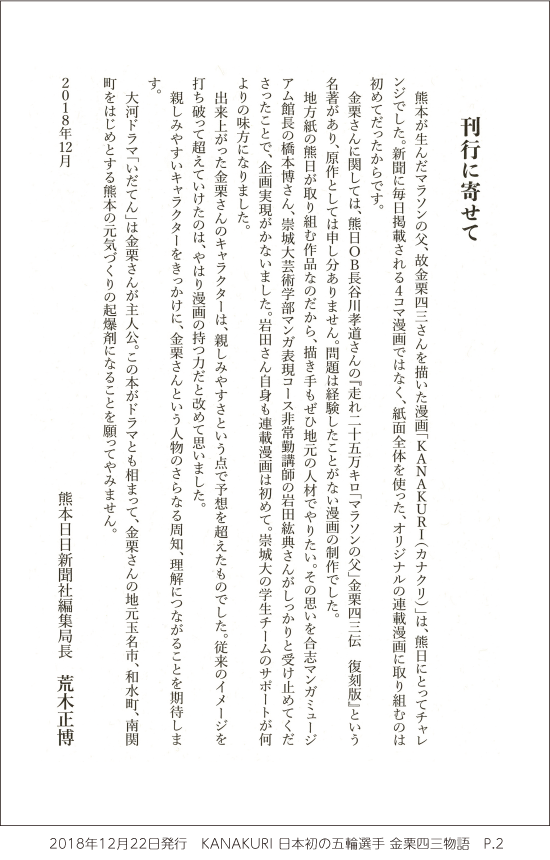 刊行に寄せて
熊本が生んだマラソンの父、故金栗四三さんを描いた漫画「KANAKURI(カナクリ)」は、熊日にとってチャレ
ンジでした。新聞に毎日掲載される4コマ漫画ではなく、紙面全体を使った、オリジナルの連載漫画に取り組むのは
初めてだったからです。
金栗さんに関しては、熊日OB長谷川孝道さんの『走れ二十五万キロ「マラソンの父」金栗四三伝　復刻版』という
名著があり、原作としては申し分ありません。問題は経験したことがない漫画の制作でした。
地方紙の熊日が取り組む作品なのだから、描き手もぜひ地元の人材でやりたい。その思いを合志マンガミュージ
アム館長の橋本博さん、崇城大芸術学部マンガ表現コース非常勤講師の岩田紘典さんがしっかりと受け止めてくだ
さったことで、企画実現がかないました。岩田さん自身も連載漫画は初めて。崇城大の学生チームのサポートが何
よりの味方になりました。
出来上がった金栗さんのキャラクターは、親しみやすさという点で予想を超えたものでした。従来のイメージを
打ち破って超えていけたのは、やはり漫画の持つ力だと改めて思いました。
親しみやすいキャラクターをきっかけに、金栗さんという人物のさらなる周知、理解につながることを期待しま
す。
大河ドラマ「いだてん」は金栗さんが主人公。この本がドラマとも相まって、金栗さんの地元玉名市、和水町、南関
町をはじめとする熊本の元気づくりの起爆剤になることを願ってやみません。
2018年12月
熊本日日新聞社編集局長　荒木正博
2018年12月22日発行　KANAKURI 日本初の五輪選手 金栗四三物語　P.2